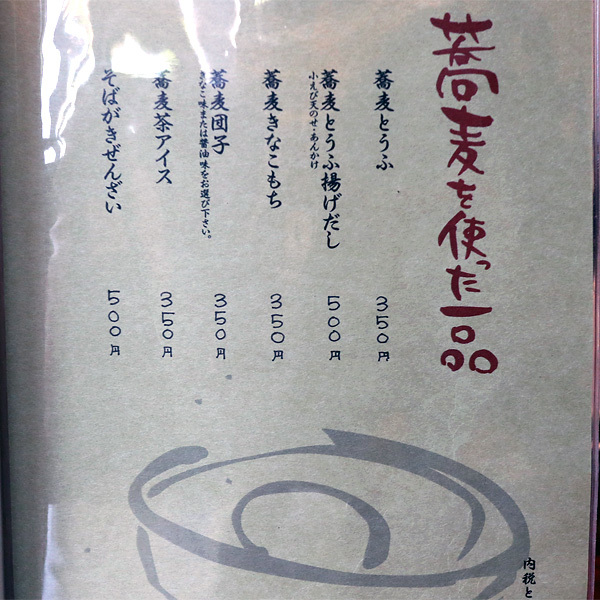 蕎麦を使った一品
蕎麦とうふ
350円
蕎麦とうふ揚げだし
小えび天のせ・あんかけ
500円
蕎麦きなこもち
350円
蕎麦団子
きなこ味または醤油味をお選び下さい。
350円
蕎麦茶アイス
350円
そばがきぜんざい
500円
内税と